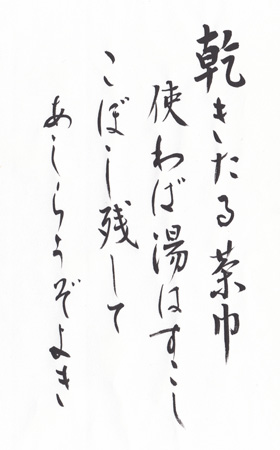 乾きたる茶巾
使わば湯はすこし
こぼし残して
あしらうぞよき